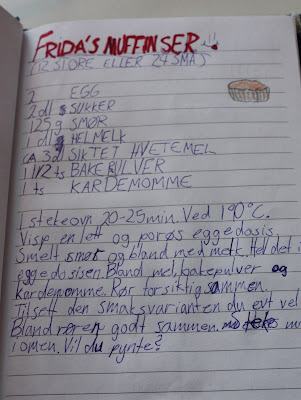 FRIDA'S MUFFINSER
(12 STORE ELLER 24 SMÅ)
2 EGG
2 dl SUKKER
125 g SMØR
1 dl HELMELK
ca 3 dl SIKTET HVETEMEL
1 1/2 ts BAKEPULVER
1 ts KARDEMOMME
I stekeovn 20-25 min. Ved 190°C.
Visp en lett og porøs eggedosis.
Smelt smør og bland med melk. Hel det i
eggedosisen. Bland mel, bakepulver og
kardemomme. Rør forsiktig sammen.
Tilsett den smaksvarianten du evt vel
Bland røren godt sammen.
iomen. Vil du pynte?